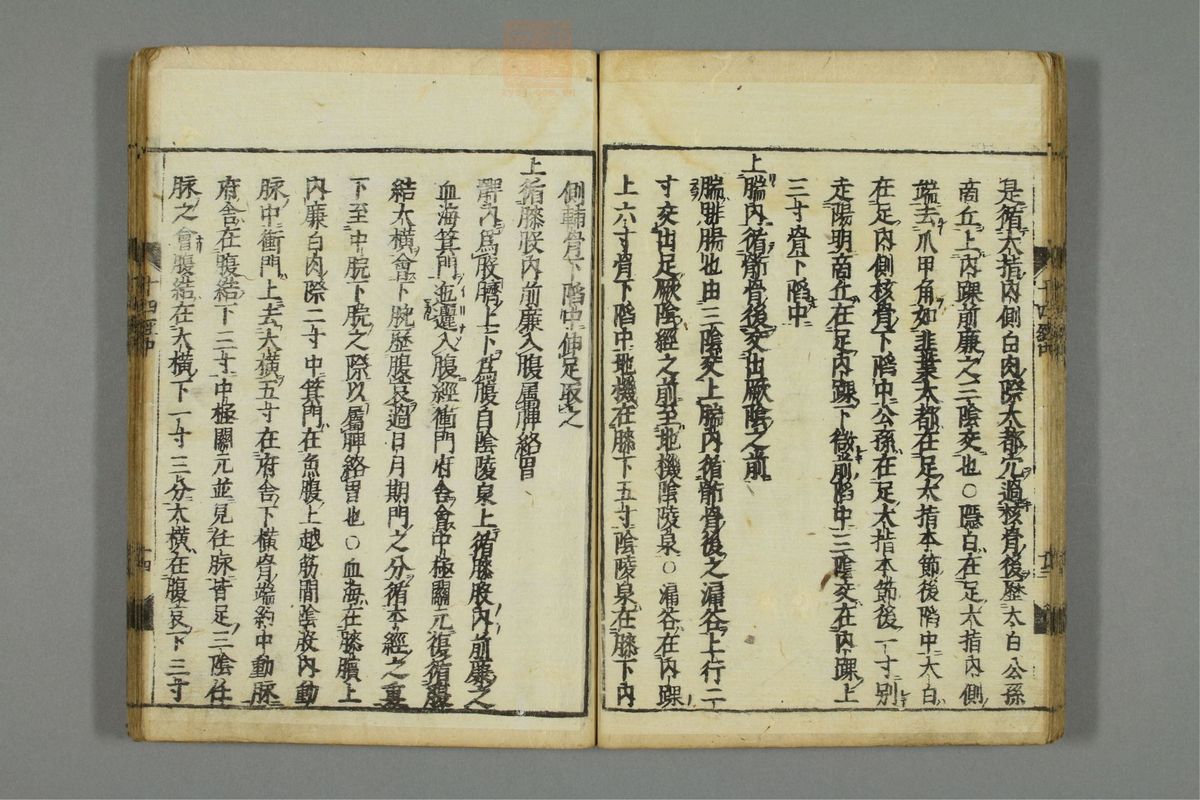 是循大指内側白肉際大都穴過核骨後歴太白公孫
商丘上内踝前廉之三陰交也○隱白在足大指内側
端去爪甲角如韭葉大都在足大指本節後陷中太白
在足内側核骨下陷中公孫在足大指本節後一寸別
走陽明商丘在足内踝下微前陷中三陰交在内踝上
三寸骨下陷中
上腨内循䯒骨後交出厥陰之前
腨腓腸也由三陰交上腨内循䯒骨後之漏谷上行二
寸交出足厥陰經之前至地機陰陵泉○漏谷在内踝
上六寸骨下陷中地機在膝下五寸陰陵泉在膝下内
側輔骨下陷中伸足取之
上循膝股内前廉入腹屬脾絡胃
髀内爲股臍上下爲腹自陰陵泉上循膝股内前廉之
血海箕門迤邐入腹經衝門府舍會中極關元復循腹
結大橫會下脘歴腹哀過日月期門之分循本經之裏
下至中脘下脘之際以屬脾絡胃也○血海在膝臏上
内廉白肉際二寸中箕門在魚腹上越筋間陰股内動
脉中衝門上去大橫五寸在府舍下橫骨端約中動脉
府舍在腹結下三寸中極關元並見任脉皆足三陰任
脉之會腹結在大橫下一寸三分大橫在腹哀下三寸
十四經中
十四